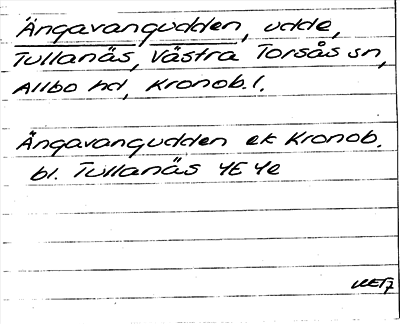 Ängavangudden, udde,
Tullanäs, Västra Torsås sn,
Allbo hd, Kronob. l.
Ängavangudden ek Kronob.
bl. Tullanäs 4E 4e